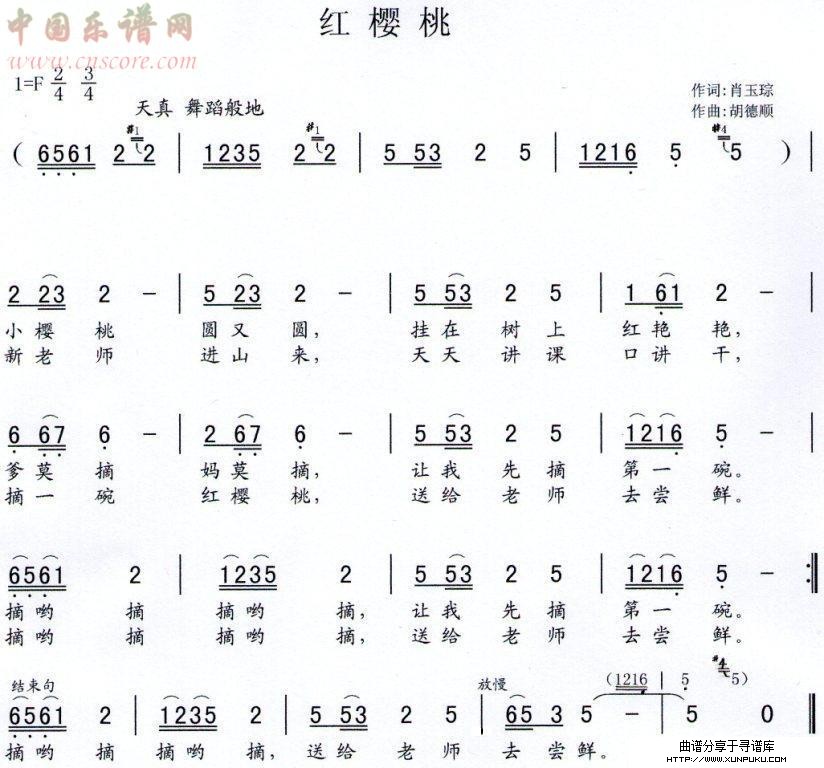 中国乐谱网
www.cnscore.com
红樱桃
1=F 2/4 3/4
天真 舞蹈般地
作词:肖玉琮
作曲:胡德顺
( 6561 #1 2 2 | 1235 #1 2 2 | 5 53 2 5 | 1216 5 #4 5 ) |
2 23 2 – | 5 23 2 – | 5 53 2 5 | 1 61 2 – |
小樱桃 圆又圆, 挂在树上 红艳艳,
新老师 进山来, 天天讲课 口讲干,
6 67 6 – | 2 67 6 – | 5 53 2 5 | 1216 5 – |
爹莫摘 妈莫摘, 让我先摘 第一碗。
摘一碗 红樱桃, 送给老师 去尝鲜。
6561 2 | 1235 2 | 5 53 2 5 | 1216 5 – :||
摘哟摘 摘哟摘, 让我先摘 第一碗。
摘哟摘 摘哟摘, 送给老师 去尝鲜。
结束句 放慢 (1216 | 5 #4 5)
6561 2 | 1235 2 | 5 53 2 5 | 65 3 5 – | 5 0 ||
摘哟摘 摘哟摘, 送给老师 去尝鲜。
曲谱分享于寻谱库
HTTP://WWW.XUNPUKU.COM